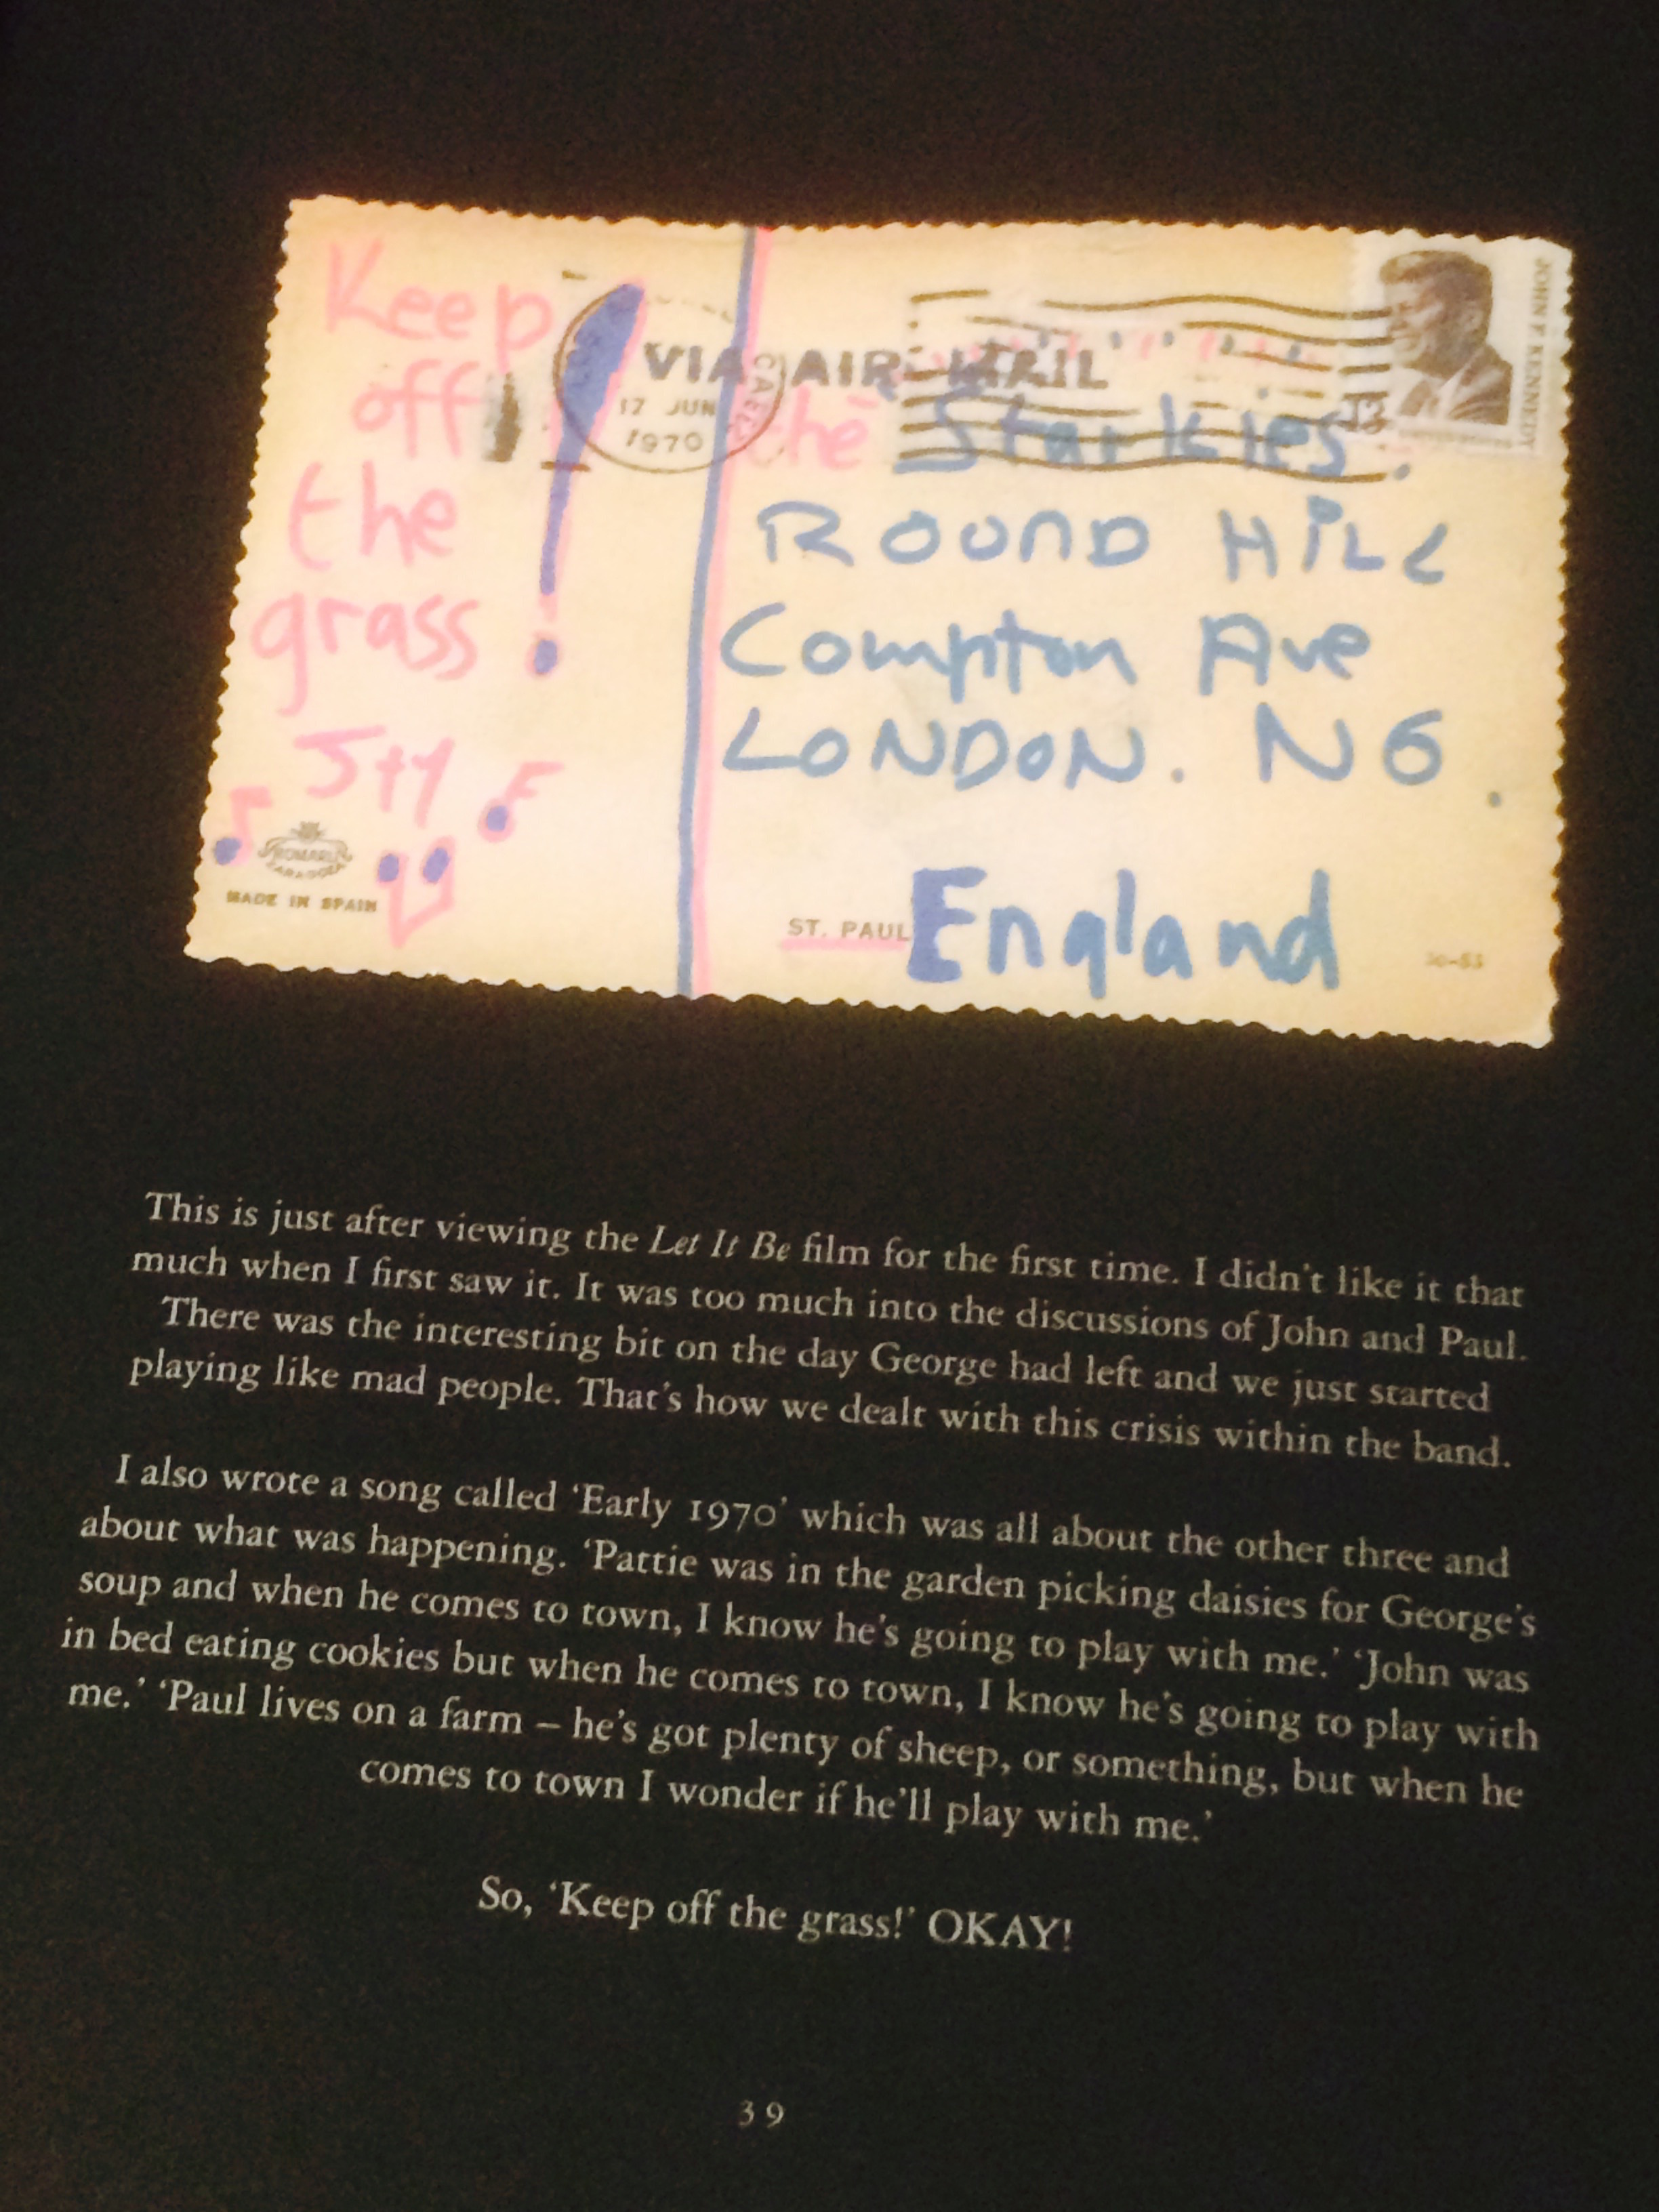 Keep
off
the
grass !
J + Y
VIA AIR MAIL
17 JUN
1970
CALIF
JOHN F KENNEDY
13
the Starkies.
ROUND HiLL
Compton Ave
LONDON. N6.
England
MADE IN SPAIN
ST. PAUL
This is just after viewing the Let It Be film for the first time. I didn't like it that
much when I first saw it. It was too much into the discussions of John and Paul.
There was the interesting bit on the day George had left and we just started
playing like mad people. That's how we dealt with this crisis within the band.
I also wrote a song called ‘Early 1970’ which was all about the other three and
about what was happening. ‘Pattie was in the garden picking daisies for George's
soup and when he comes to town, I know he's going to play with me.’ ‘John was
in bed eating cookies but when he comes to town, I know he's going to play with
me.’ ‘Paul lives on a farm – he's got plenty of sheep, or something, but when he
comes to town I wonder if he'll play with me.’
So, ‘Keep off the grass!’ OKAY!
39